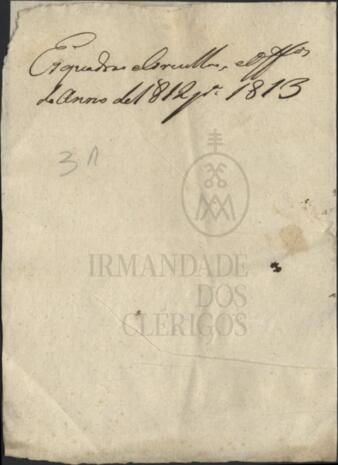 Esquadras e Circullos, e Offos
do Anno de 1812 pa. 1813
3
IRMANDADE
DOS
CLÉRIGOS